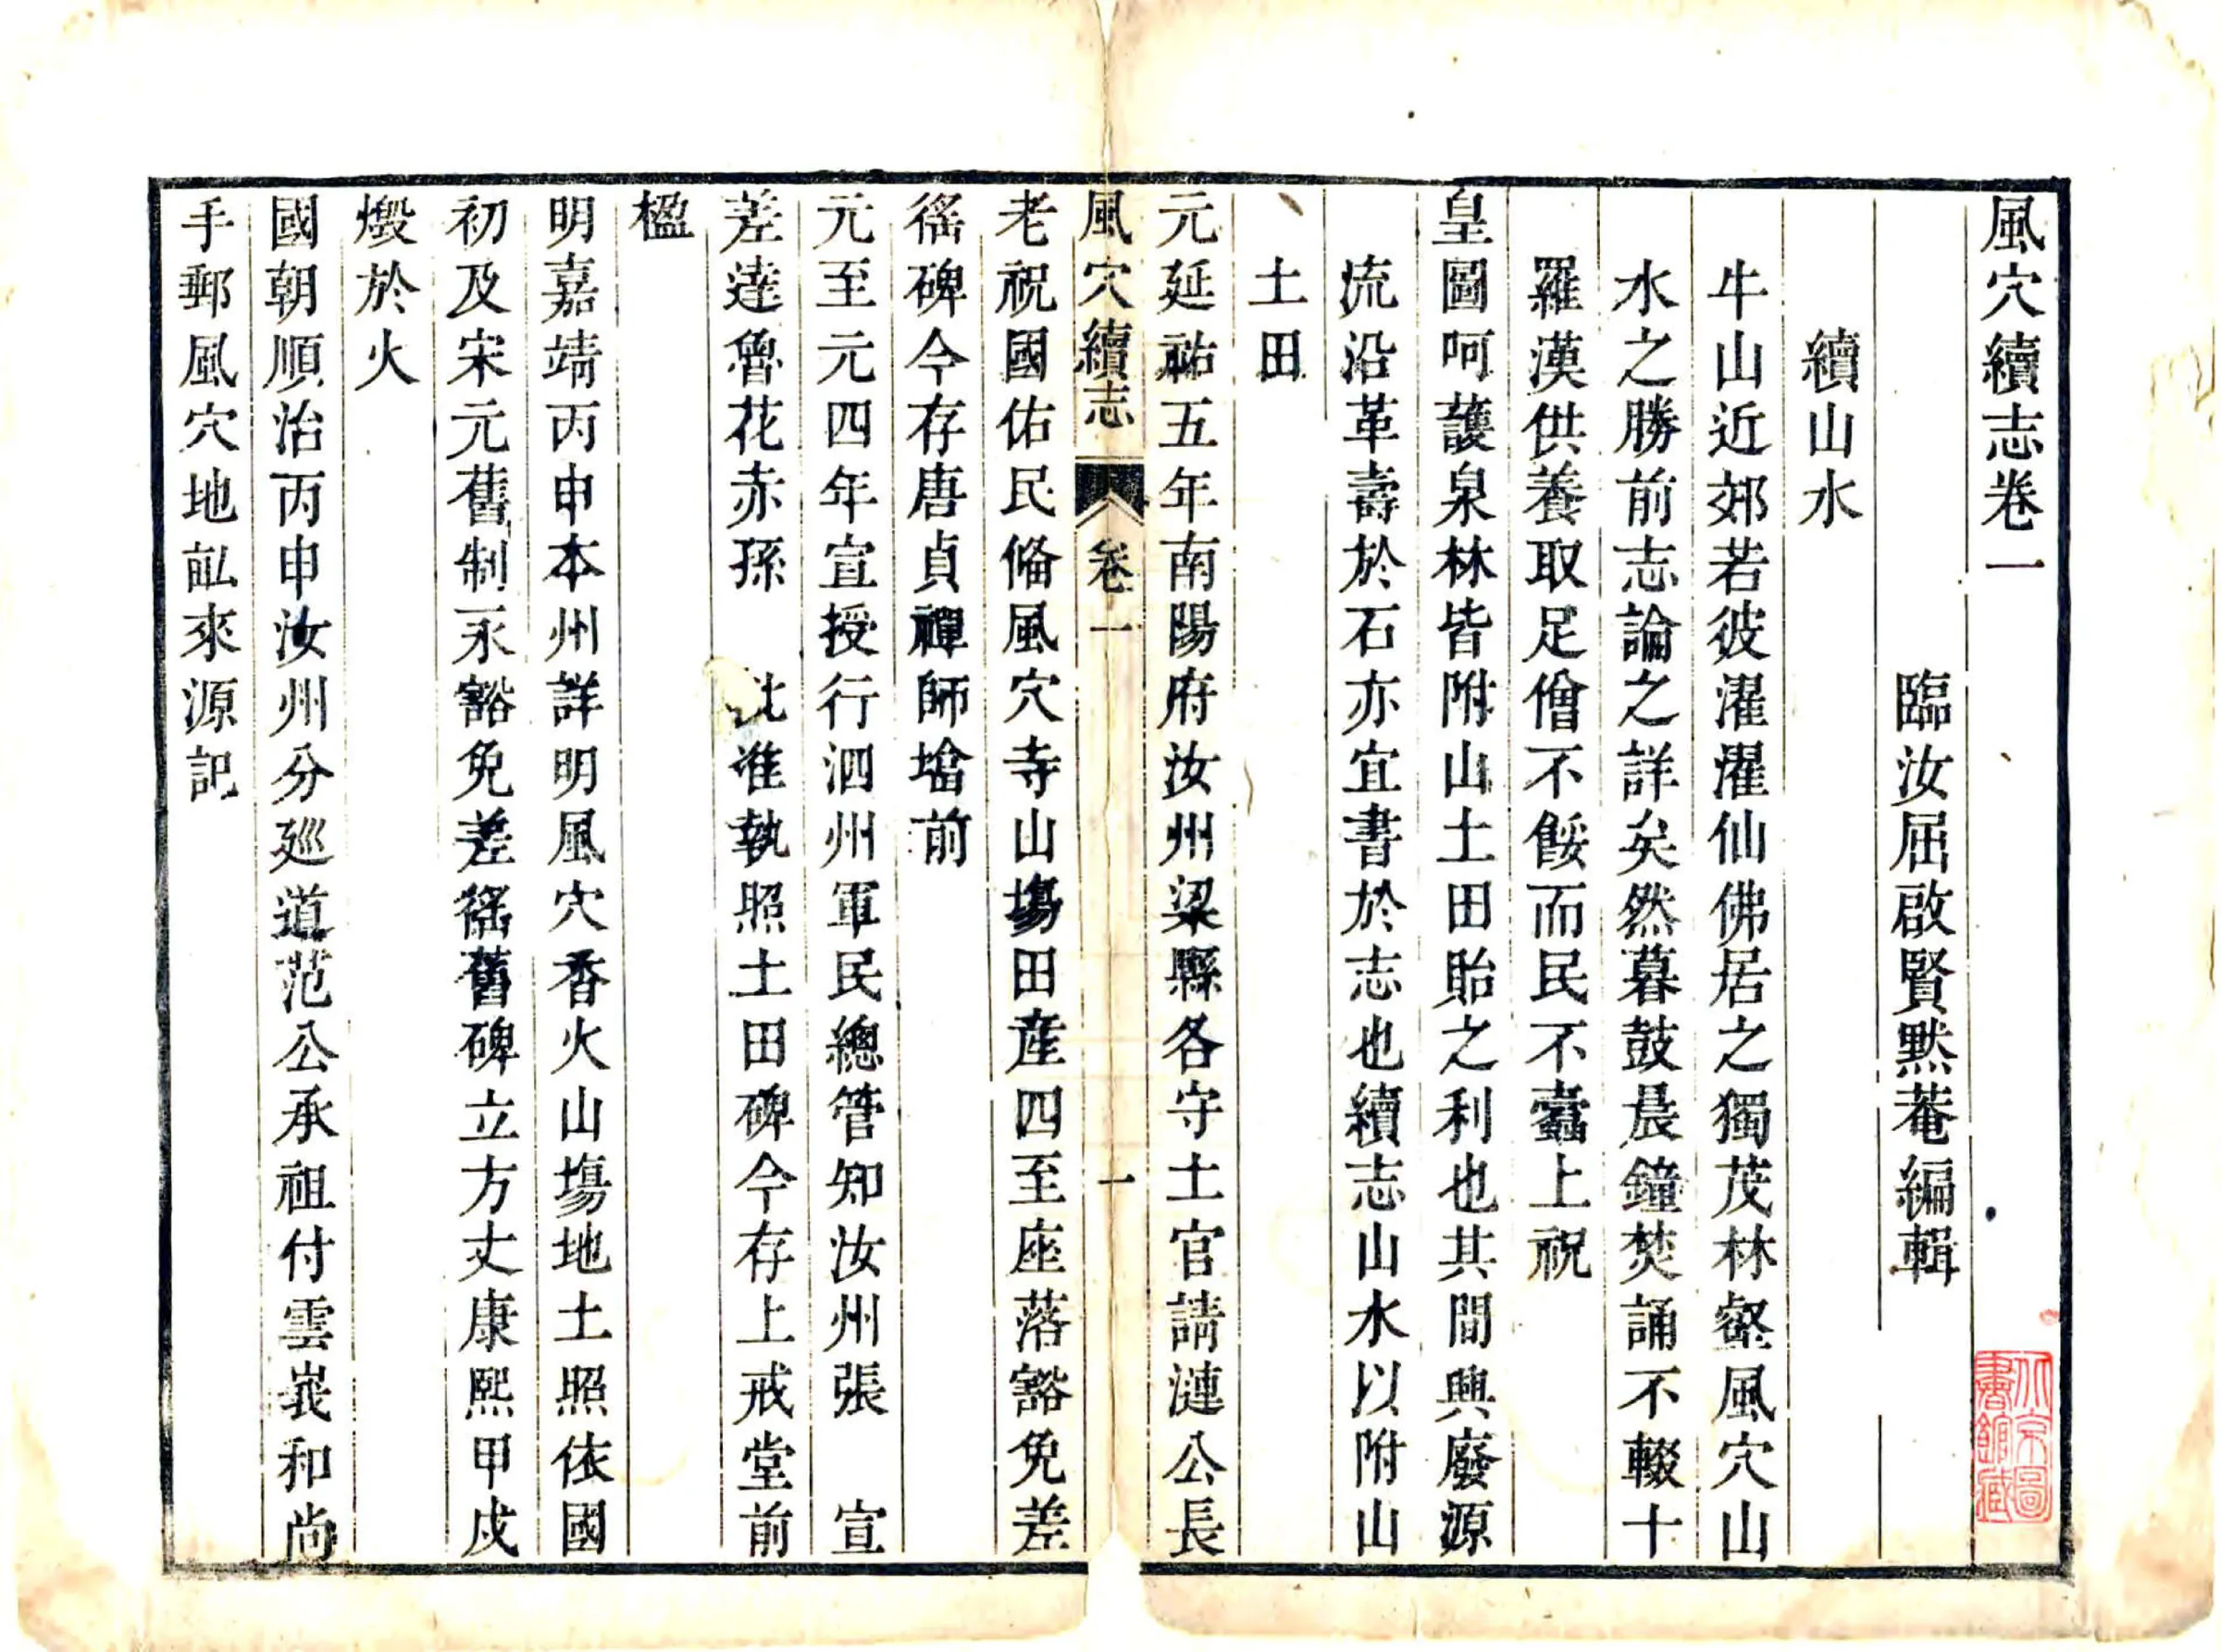 風穴續志卷一
臨汝屈啟賢黙菴編輯
續山水
牛山近郊若彼濯濯仙佛居之獨茂林壑風穴山
水之勝前志論之詳矣然暮鼓晨鐘焚誦不輟十
羅漢供養取足僧不餒而民不蠹上祝
皇圖呵護泉林皆附山土田貽之利也其間興廢源
流沿革壽於石亦宜書於志也續志山水以附山
土田
元延祐五年南陽府汝州梁縣各守土官請漣公長
風穴續志 卷一 一
老祝國佑民脩風穴寺山塲田產四至座落豁免差
徭碑今存唐貞禪師墖前
元至元四年宣授行泗州軍民總管知汝州張 宣
差達魯花赤孫 批准執照土田碑今存上戒堂前
楹
明嘉靖丙申本州詳明風穴香火山塲地土照依國
初及宋元舊制永豁免差徭舊碑立方丈康熙甲戍
燬於火
國朝順治丙申汝州分廵道范公承祖付雲峩和尚
手郵風穴地畝來源記
北京圖書館藏